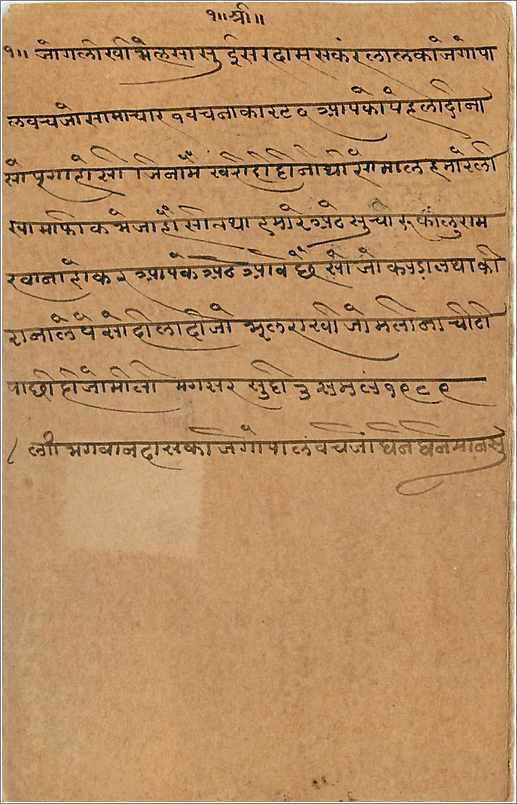 १॥श्री॥
१॥ जोगलीखी भेलसा सु ईसरदास सकंरलालको जेगोपा
लवचजो सामाचार १ वचना कारड १ आपको पेहलो दीना
सो पुगा होसी जिनमै खरीदी होना थी सो माल हमारे ली
खा माफीक भेजा हो सो तथा हमारे अठे सु ची कालुराम
रवाना होकर आपके अठे आवे छे सो जो कपड़ा तथा की
राना लेवे सो दीला दीजो भूल राखी जो मती ना चीठी
पाछी दीजो मीती मगसर सुदी ३ समत १९८९
/ ली भगवानदासको जेगोपाल वचजो घने घने मानसु